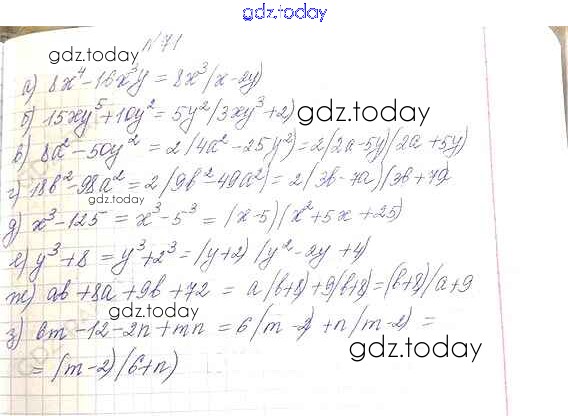 gdz.today
№71
gdz.today
а) 8x⁴-16x³y = 8x³(x-2y)
б) 15xy⁵+10y² = 5y²(3xy³+2)
gdz.today
в) 8a²-50y² = 2(4a²-25y²) = 2(2a-5y)(2a+5y)
г) 18b²-98a² = 2(9b²-49a²) = 2(3b-7a)(3b+7a
gdz.today
д) x³-125 = x³-5³ = (x-5)(x²+5x+25)
е) y³+8 = y³+2³ = (y+2)(y²-2y+4)
ж) ab+8a+9b+72 = a(b+8)+9(b+8) = (b+8)(a+9
з) 6m-12-2n+mn = 6(m-2)+n(m-2) =
gdz.today
= (m-2)(6+n)